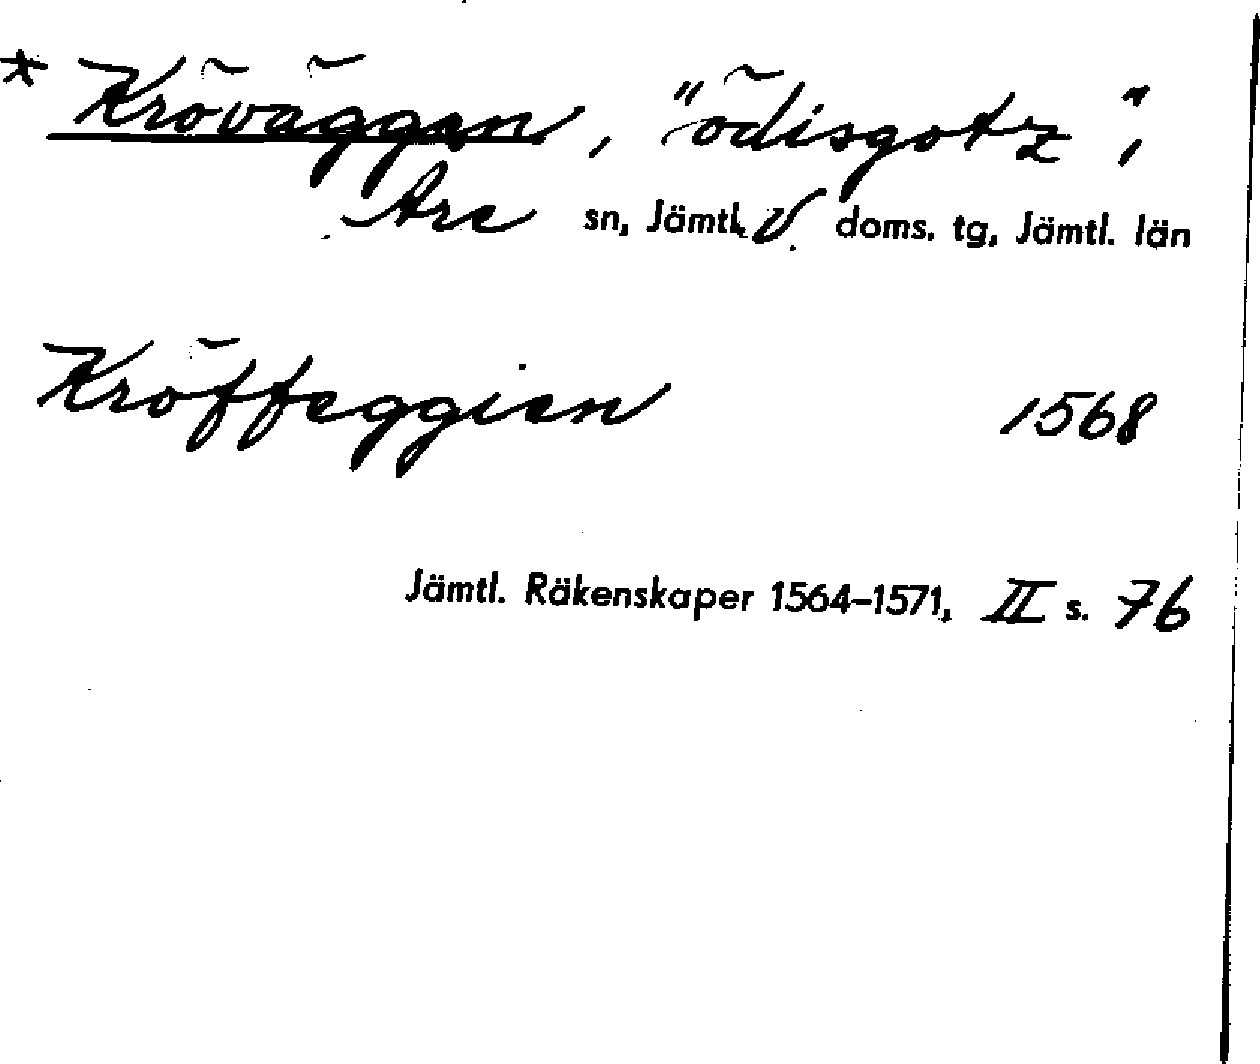 * Kröväggen, "ödisgotz",
Åre sn, Jämtl. V. doms. tg, Jämtl. län
Kröffeggien 1568
Jämtl. Räkenskaper 1564-1571, II s. 76